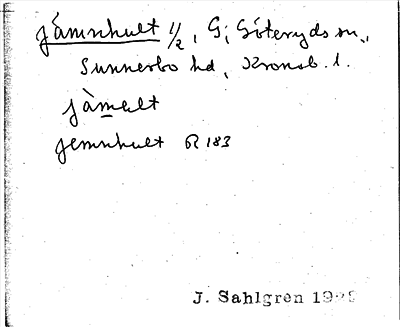 Jämnhult 1/2, G; Göteryds sn.,
Sunnerbo hd, Kronob. l.
jàmelt
Jemnhult R 183
J. Sahlgren 1925